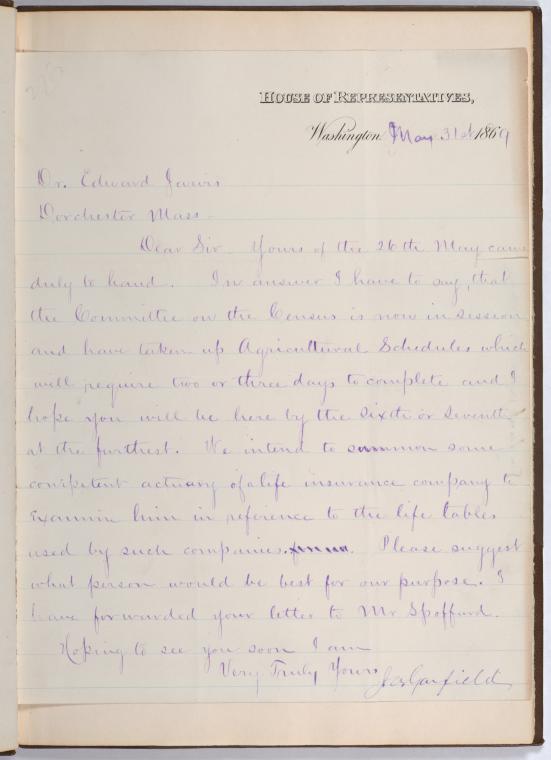 House of Representatives,
Washington May 31st 1869
Dr. Edward Jarvis
Dorchester Mass.
Dear Sir Yours of the 26th May came
duly to hand. In answer I have to say, that
the Committee on the Census is now in session
and have taken up Agricultural Schedules which
will require two or three days to complete and I
hope you will be here by the sixth or seventh
at the furthest. We intend to summon some
competent actuary of a life insurance company to
examin him in reference to the life tables
used by such companies. Please suggest
what person would be best for our purpose. I
have forwarded your letter to Mr Spofford.
Hoping to see you soon I am
Very Truly Yours
J A Garfield